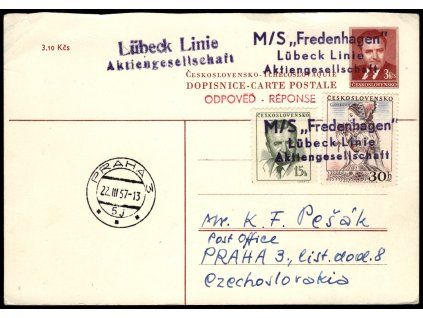 3.10 Kčs
Lübeck Linie
Aktiengesellschaft
M/S „Fredenhagen"
Lübeck Linie
Aktiengesellschaft
3 Kčs
ČESKOSLOVENSKO-TCHÉCOSLOVAQUIE
DOPISNICE-CARTE POSTALE
ODPOVĚĎ - RÉPONSE
M/S „Fredenhagen"
Lübeck Linie
Aktiengesellschaft
ČESKOSLOVENSKO
15h
ČESKOSLOVENSKO
30h
PRAHA 3
22.III 57-13
5J
Mr. K. F. Pešák
Post Office
PRAHA 3., list. dod. 8
Czechoslovakia